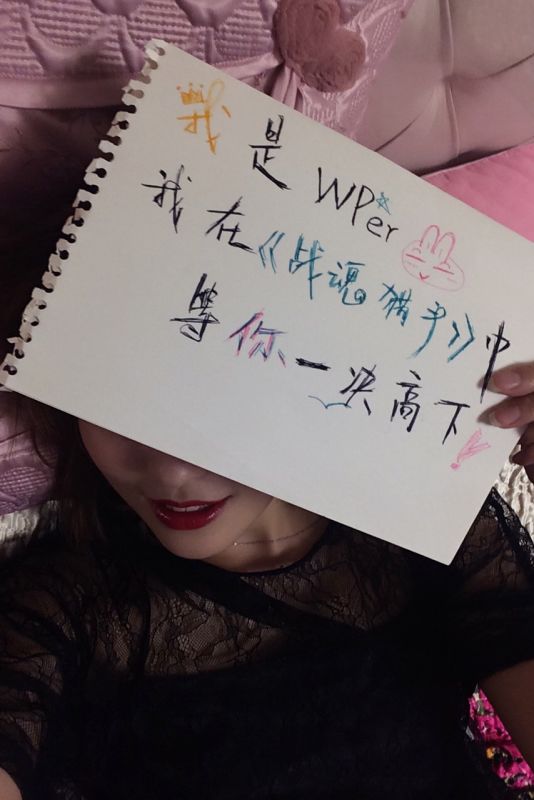 我是WPer
我在《战魂猎手》中
等你一决高下!